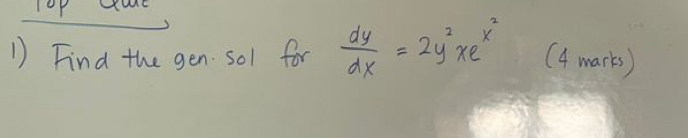 Top Quiz
1) Find the gen. sol for dy/dx = 2y²xe^x² (4 marks)